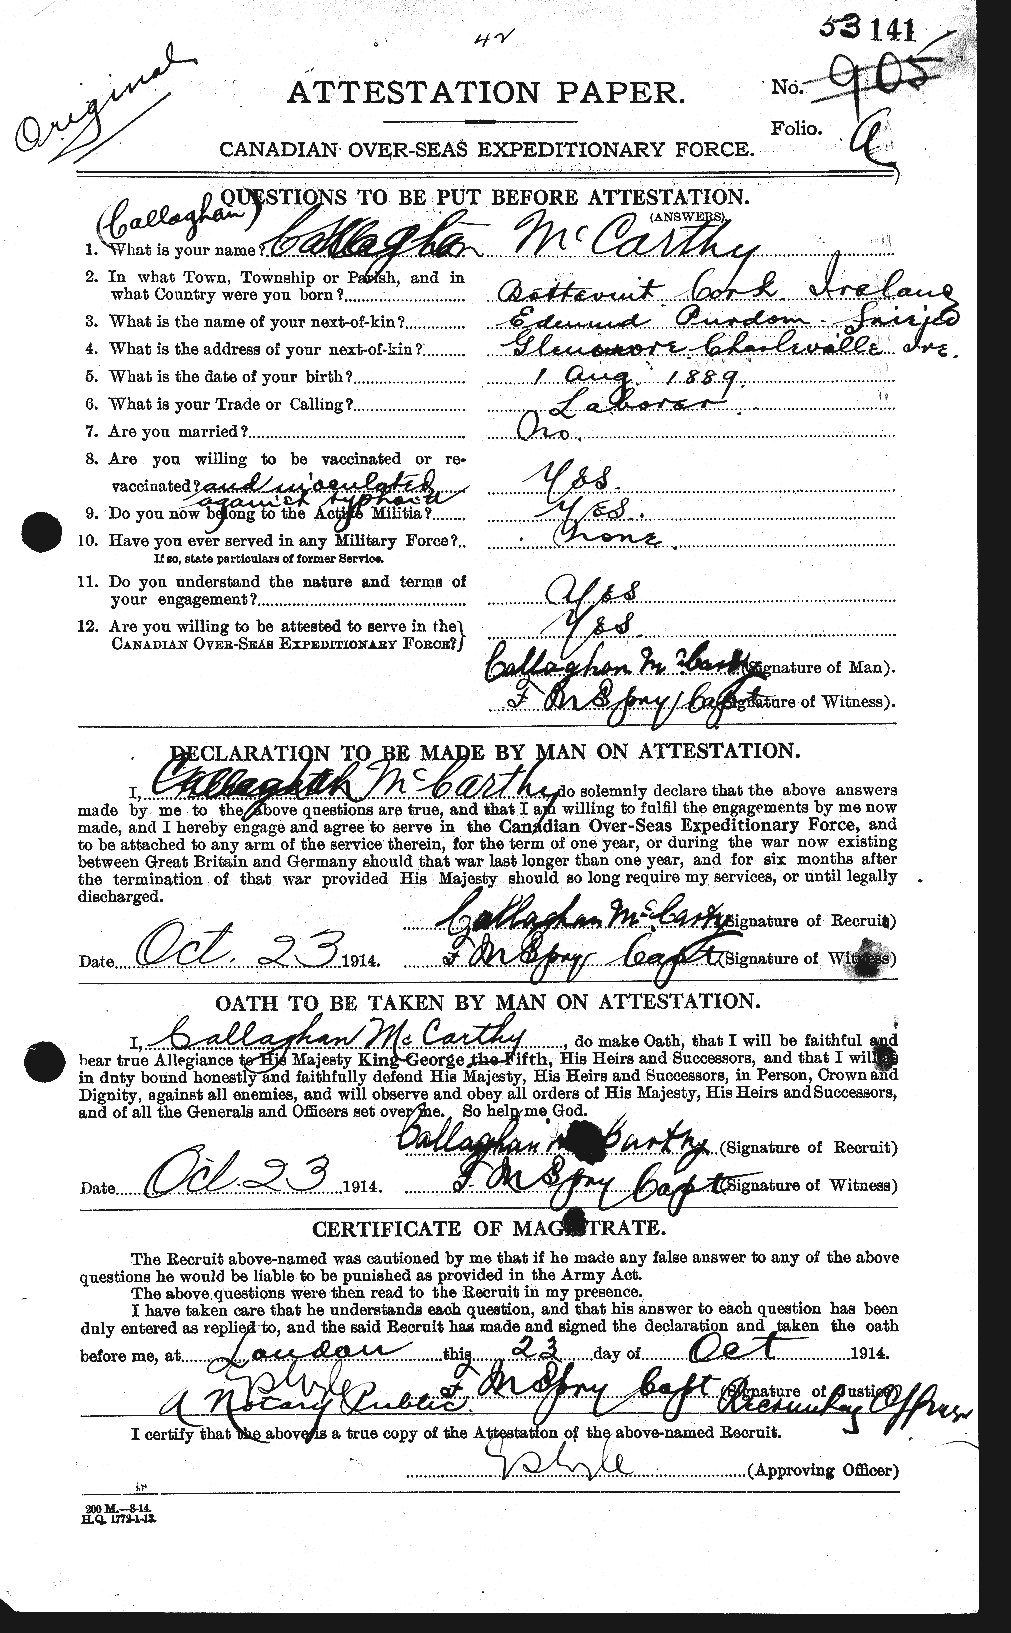 42
53141
No. 905
Original
ATTESTATION PAPER.
Folio. A
CANADIAN OVER-SEAS EXPEDITIONARY FORCE.
QUESTIONS TO BE PUT BEFORE ATTESTATION.
(Callaghan)
(ANSWERS)
1. What is your name? Callaghan McCarthy
2. In what Town, Township or Parish, and in
what Country were you born? Cork Ireland
3. What is the name of your next-of-kin? Edmund Purdom
4. What is the address of your next-of-kin? Charleville Ire.
5. What is the date of your birth? 1 Aug 1889.
6. What is your Trade or Calling? Laborer
7. Are you married? No.
8. Are you willing to be vaccinated or re-
vaccinated? and inoculated Yes.
against typhoid
9. Do you now belong to the Active Militia? Yes.
10. Have you ever served in any Military Force? None.
If so, state particulars of former Service.
11. Do you understand the nature and terms of
your engagement? Yes
12. Are you willing to be attested to serve in the
CANADIAN OVER-SEAS EXPEDITIONARY FORCE? Yes.
Callaghan McCarthy (Signature of Man).
F M Spry Capt (Signature of Witness).
DECLARATION TO BE MADE BY MAN ON ATTESTATION.
I, Callaghan McCarthy do solemnly declare that the above answers
made by me to the above questions are true, and that I am willing to fulfil the engagements by me now
made, and I hereby engage and agree to serve in the Canadian Over-Seas Expeditionary Force, and
to be attached to any arm of the service therein, for the term of one year, or during the war now existing
between Great Britain and Germany should that war last longer than one year, and for six months after
the termination of that war provided His Majesty should so long require my services, or until legally
discharged.
Callaghan McCarthy (Signature of Recruit)
Date Oct. 23 1914. F M Spry Capt (Signature of Witness)
OATH TO BE TAKEN BY MAN ON ATTESTATION.
I, Callaghan McCarthy, do make Oath, that I will be faithful and
bear true Allegiance to His Majesty King George the Fifth, His Heirs and Successors, and that I will as
in duty bound honestly and faithfully defend His Majesty, His Heirs and Successors, in Person, Crown and
Dignity, against all enemies, and will observe and obey all orders of His Majesty, His Heirs and Successors,
and of all the Generals and Officers set over me. So help me God.
Callaghan McCarthy (Signature of Recruit)
Date Oct. 23 1914. F M Spry Capt (Signature of Witness)
CERTIFICATE OF MAGISTRATE.
The Recruit above-named was cautioned by me that if he made any false answer to any of the above
questions he would be liable to be punished as provided in the Army Act.
The above questions were then read to the Recruit in my presence.
I have taken care that he understands each question, and that his answer to each question has been
duly entered as replied to, and the said Recruit has made and signed the declaration and taken the oath
before me, at London this 23 day of Oct 1914.
F M Spry Capt (Signature of Justice)
A Notary Public. Recruiting Officer
I certify that the above is a true copy of the Attestation of the above-named Recruit.
(Approving Officer)
200 M.—8-14.
H.Q. 1772-1-13.